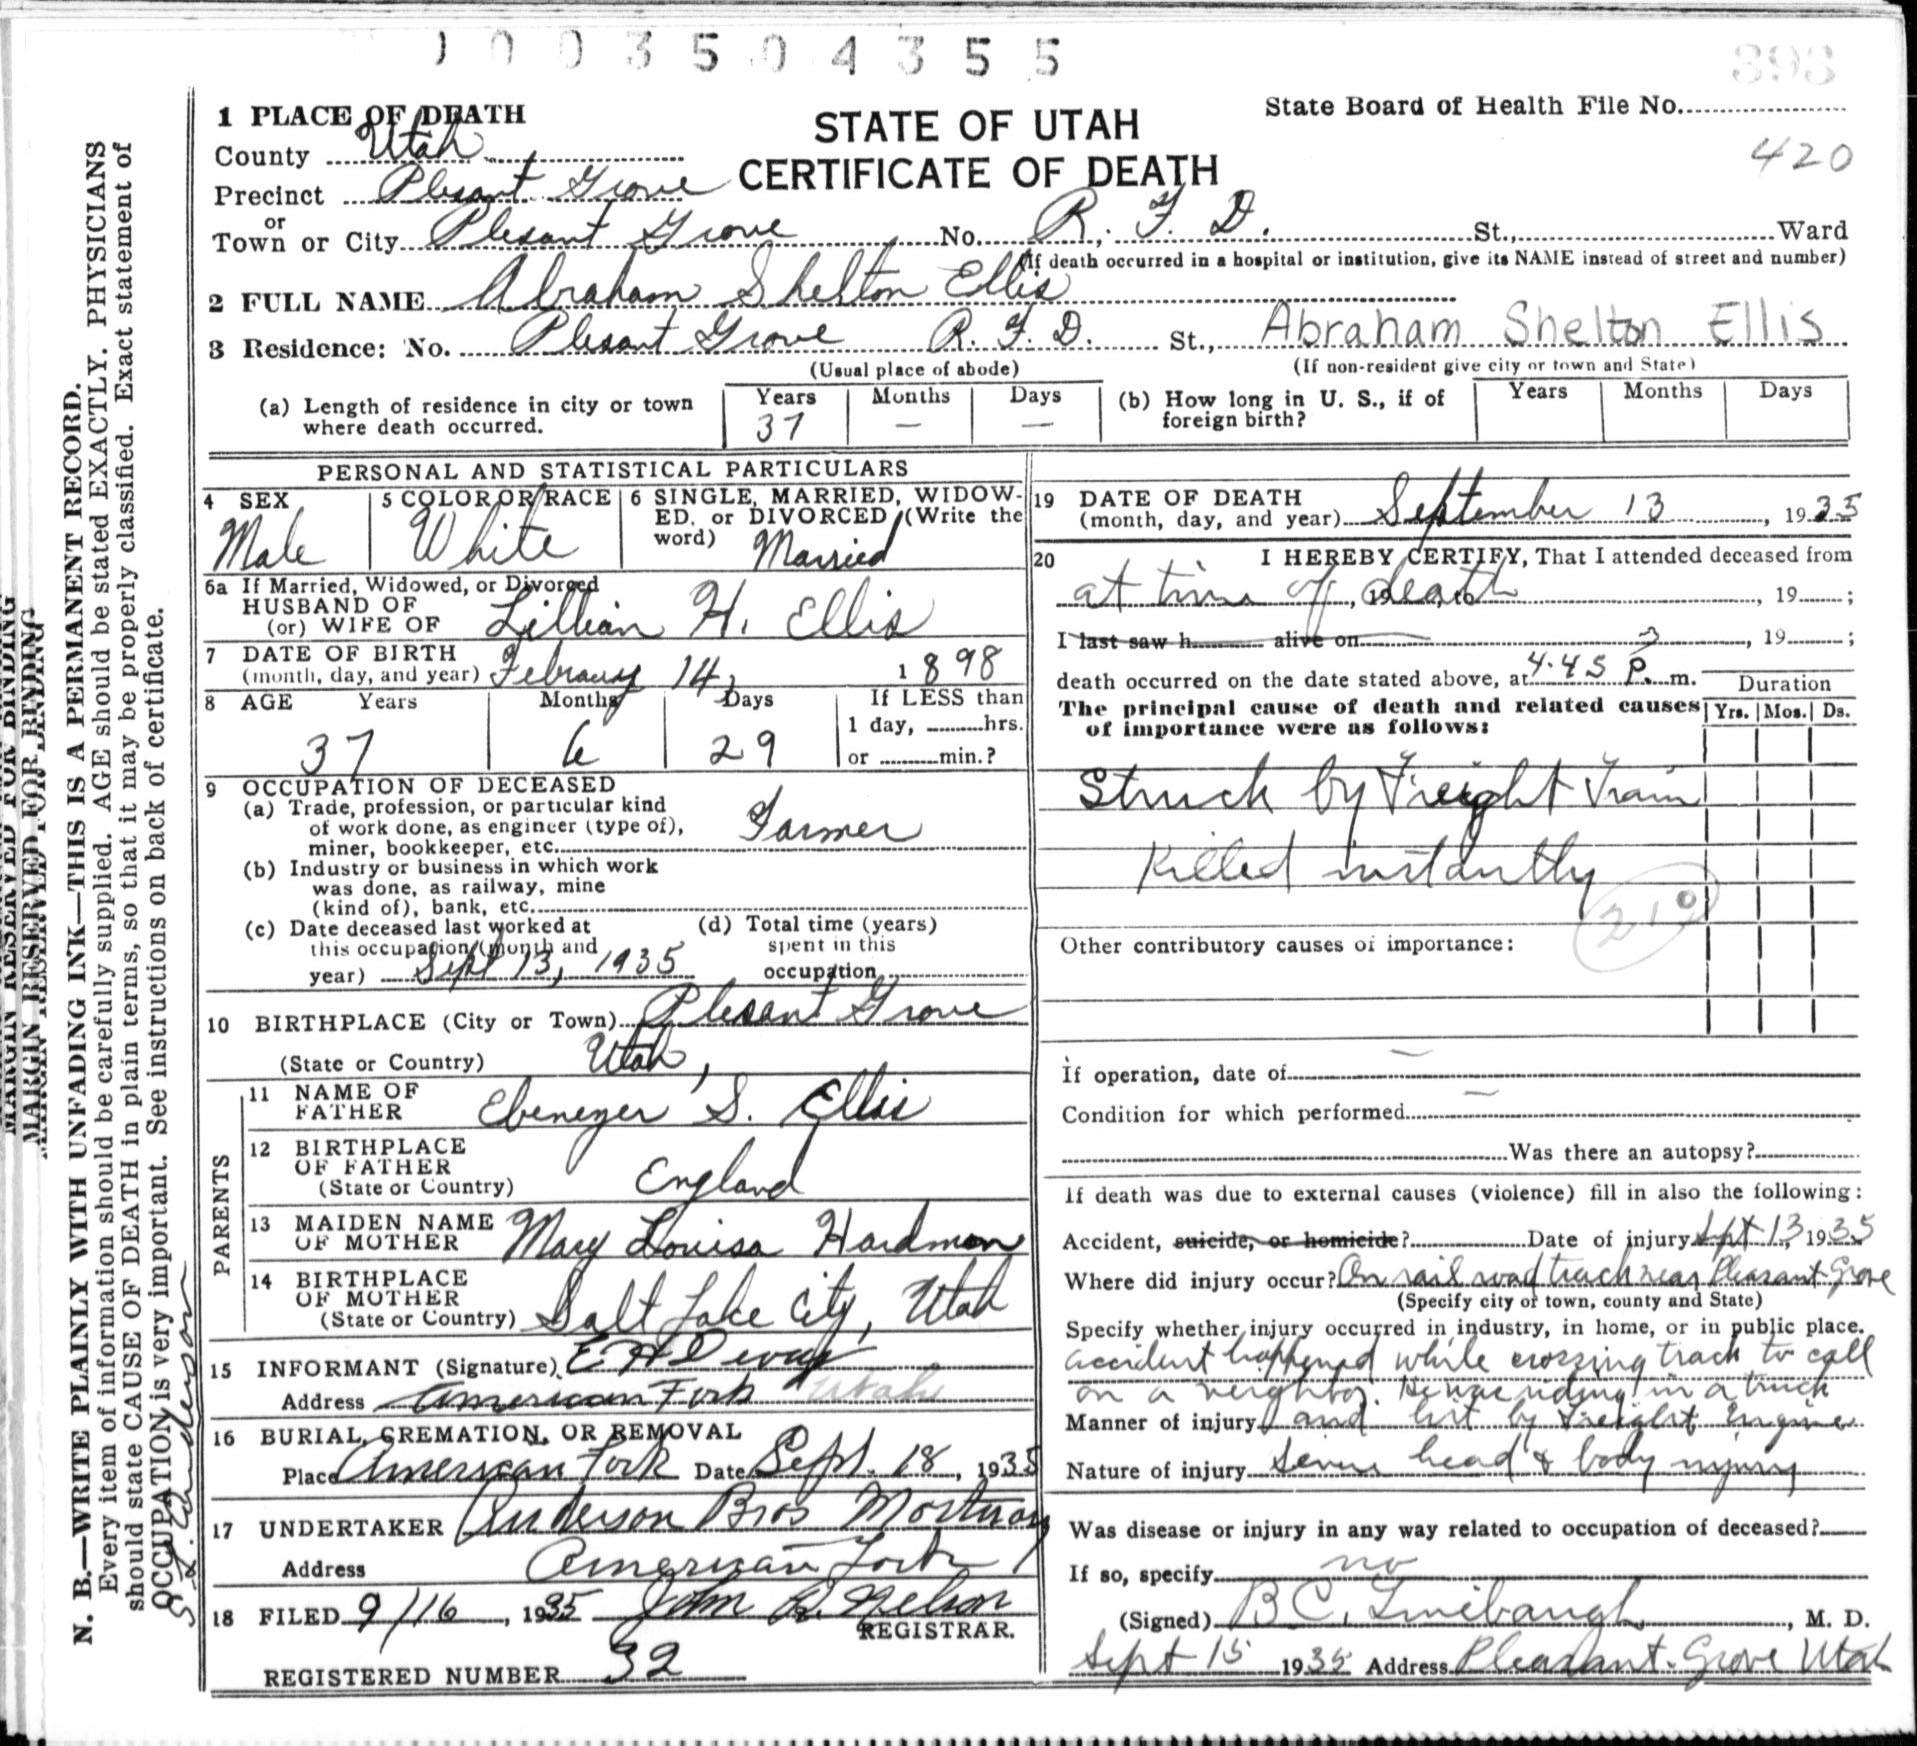 1 0 0 3 5 0 4 3 5 5
893
1 PLACE OF DEATH
STATE OF UTAH
CERTIFICATE OF DEATH
State Board of Health File No.
420
County Utah
Precinct Plesant Grove
or
Town or City Plesant Grove No. R. F. D. St., Ward
(If death occurred in a hospital or institution, give its NAME instead of street and number)
2 FULL NAME Abraham Shelton Ellis
3 Residence: No. Plesant Grove R. F. D. St., Abraham Shelton Ellis
(Usual place of abode) (If non-resident give city or town and State)
(a) Length of residence in city or town where death occurred. Years 37 Months — Days —
(b) How long in U. S., if of foreign birth? Years Months Days
PERSONAL AND STATISTICAL PARTICULARS
4 SEX Male
5 COLOR OR RACE White
6 SINGLE, MARRIED, WIDOW-
ED, or DIVORCED (Write the
word) Married
6a If Married, Widowed, or Divorced
HUSBAND OF
(or) WIFE OF Lillian H. Ellis
7 DATE OF BIRTH
(month, day, and year) Febrauy 14, 1898
8 AGE Years Months Days If LESS than
37 6 29 1 day, hrs.
or min.?
9 OCCUPATION OF DECEASED
(a) Trade, profession, or particular kind
of work done, as engineer (type of),
miner, bookkeeper, etc. Farmer
(b) Industry or business in which work
was done, as railway, mine
(kind of), bank, etc.
(c) Date deceased last worked at
this occupation (month and
year) Sept 13, 1935
(d) Total time (years)
spent in this
occupation
10 BIRTHPLACE (City or Town) Plesant Grove
(State or Country) Utah,
PARENTS
11 NAME OF
FATHER Ebenezer S. Ellis
12 BIRTHPLACE
OF FATHER
(State or Country) England
13 MAIDEN NAME
OF MOTHER Mary Louisa Hardman
14 BIRTHPLACE
OF MOTHER
(State or Country) Salt Lake City, Utah
15 INFORMANT (Signature) E. H.
Address American Fork Utah
16 BURIAL, CREMATION, OR REMOVAL
Place American Fork Date Sept. 18, 1935
17 UNDERTAKER Anderson Bros Mortuary
Address American Fork
18 FILED 9/16, 1935 John Nelson
REGISTRAR.
REGISTERED NUMBER 32
19 DATE OF DEATH
(month, day, and year) September 13, 1935
20 I HEREBY CERTIFY, That I attended deceased from
at time of death, 19 , to , 19 ;
I last saw h alive on , 19 ;
death occurred on the date stated above, at 4.45 P. m.
Duration
The principal cause of death and related causes
of importance were as follows:
Yrs. Mos. Ds.
Struck by Freight Train
Killed instantly
Other contributory causes of importance:
If operation, date of —
Condition for which performed —
Was there an autopsy?
If death was due to external causes (violence) fill in also the following:
Accident, suicide, or homicide? Date of injury Sept 13, 1935
Where did injury occur? On rail road track near Pleasant Grove
(Specify city or town, county and State)
Specify whether injury occurred in industry, in home, or in public place.
accident happened while crossing track to call
on a neighbor. He was riding in a truck
Manner of injury and hit by Freight Engine
Nature of injury Severe head & body injury
Was disease or injury in any way related to occupation of deceased?
If so, specify no
(Signed) B C. , M. D.
Sept 15 1935 Address Pleasant Grove Utah
MARGIN RESERVED FOR BINDING
MARGIN RESERVED FOR BINDING
N. B.—WRITE PLAINLY WITH UNFADING INK—THIS IS A PERMANENT RECORD.
Every item of information should be carefully supplied. AGE should be stated EXACTLY. PHYSICIANS
should state CAUSE OF DEATH in plain terms, so that it may be properly classified. Exact statement of
OCCUPATION is very important. See instructions on back of certificate.